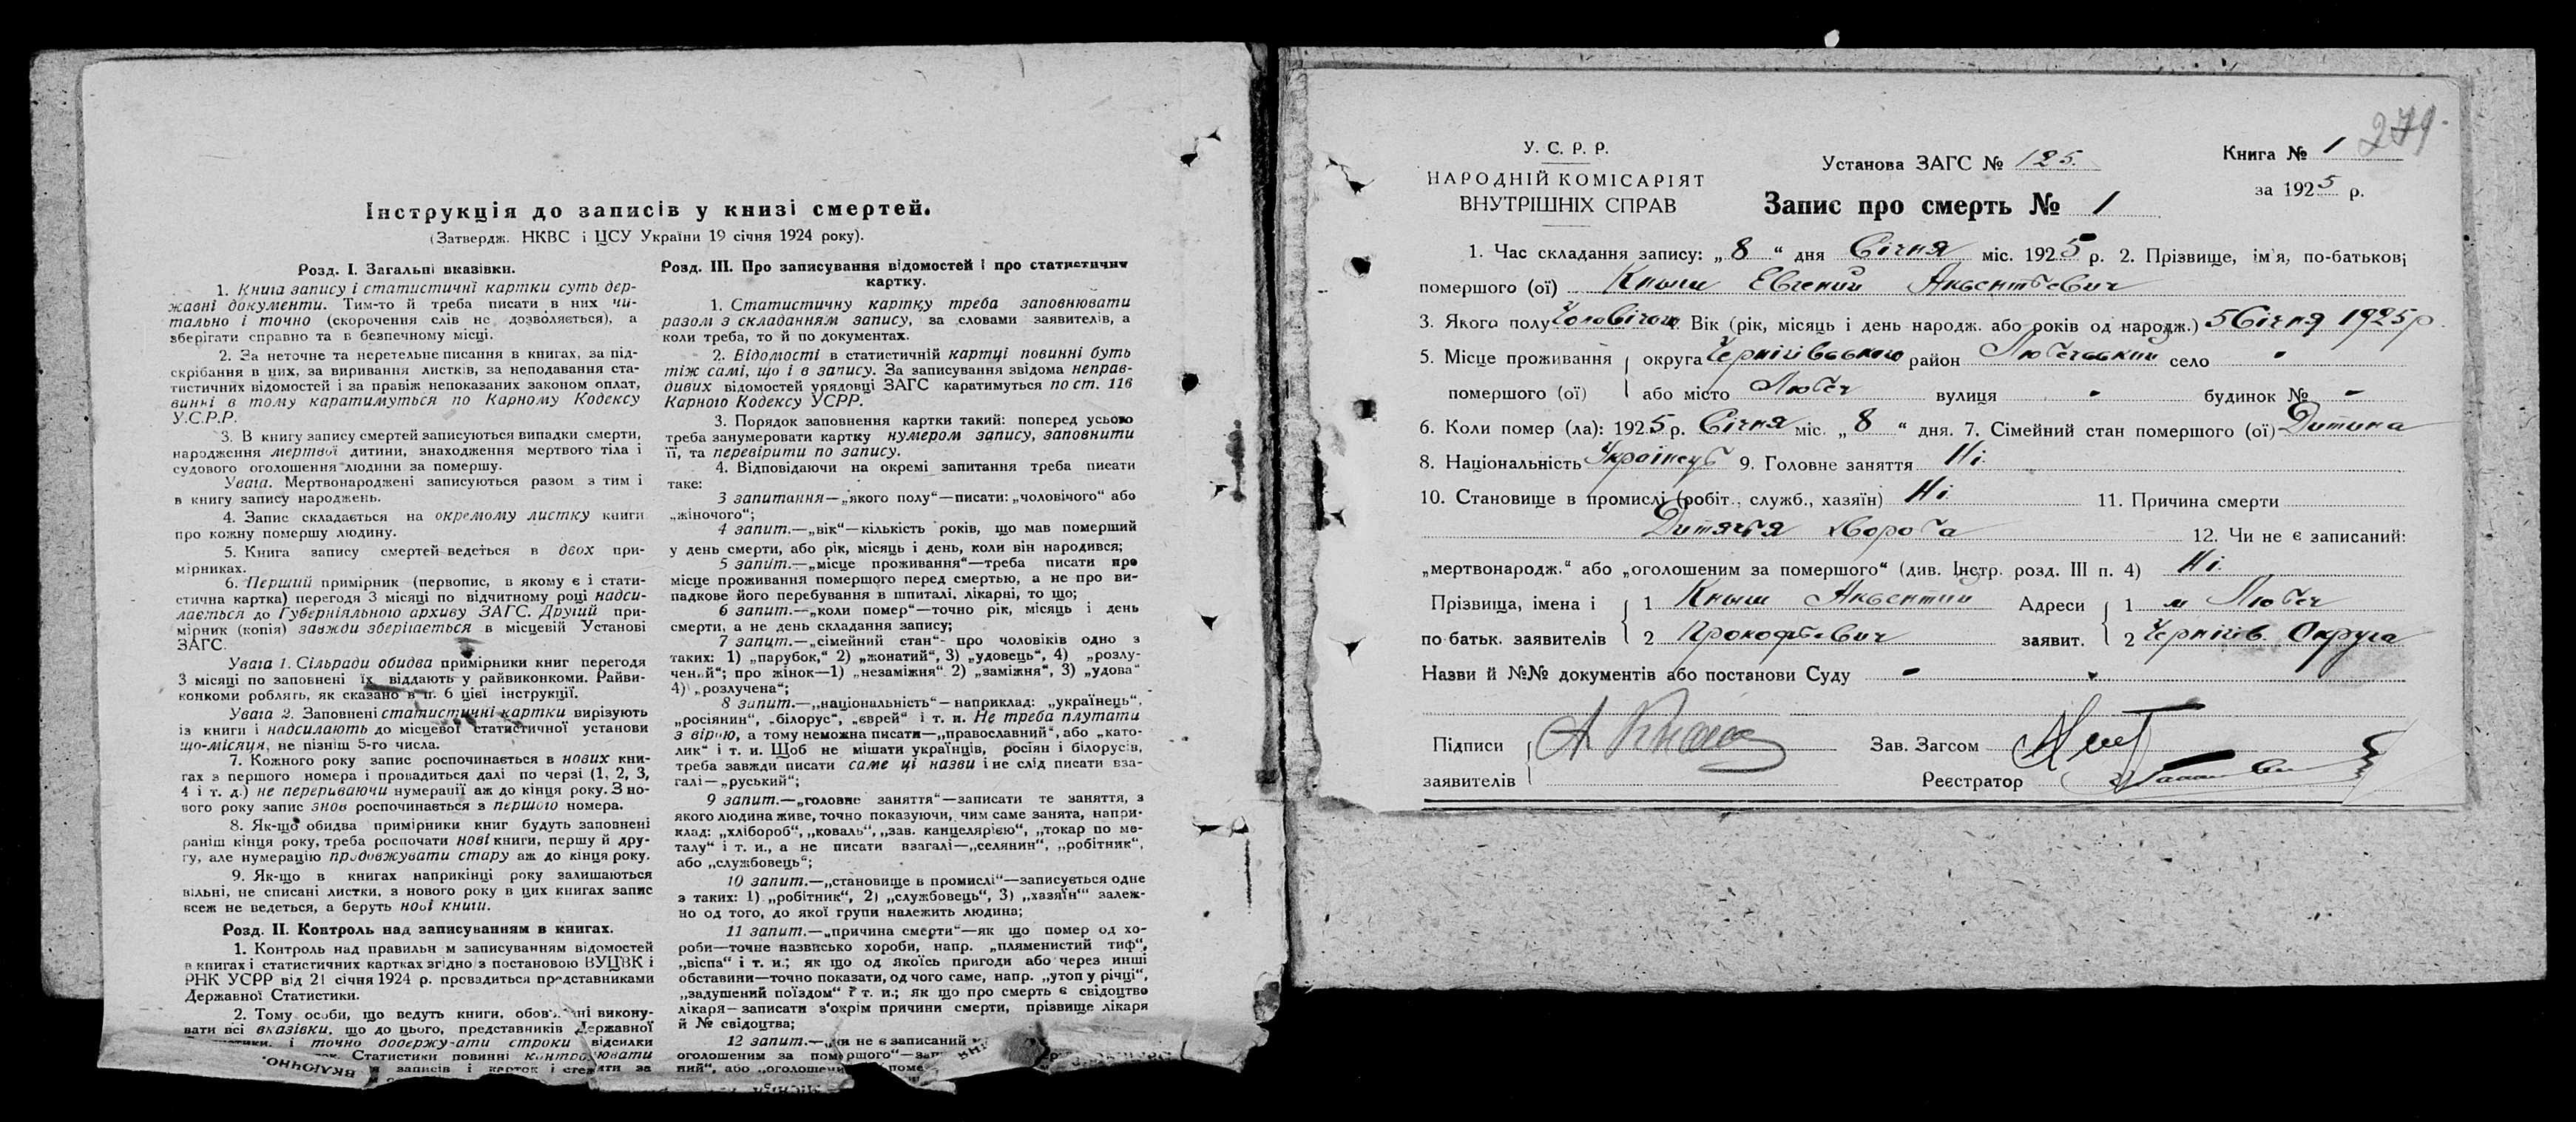 Інструкція до записів у книзі смертей.
(Затвердж. НКВС і ЦСУ України 19 січня 1924 року).
Розд. I. Загальні вказівки.
1. Книга запису і статистичні картки суть дер-
жавні документи. Тим-то й треба писати в них чи-
тально і точно (скорочення слів не дозволяється), а
зберігати справно та в безпечному місці.
2. За неточне та неретельне писання в книгах, за під-
скрібання в них, за виривання листків, за неподавання ста-
тистичних відомостей і за правіж непоказаних законом оплат,
винні в тому каратимуться по Карному Кодексу
У.С.Р.Р.
3. В книгу запису смертей записуються випадки смерти,
народження мертвої дитини, знаходження мертвого тіла і
судового оголошення людини за помершу.
Увага. Мертвонароджені записуються разом з тим і
в книгу запису народжень.
4. Запис складається на окремому листку книги
про кожну помершу людину.
5. Книга запису смертей ведеться в двох при-
мірниках.
6. Перший примірник (первопис, в якому є і стати-
стична картка) перегодя 3 місяці по відчитному році надси-
лається до Губерніяльного архиву ЗАГС. Другий при-
мірник (копія) завжди зберігається в місцевій Установі
ЗАГС.
Увага 1. Сільради обидва примірники книг перегодя
3 місяці по заповнені їх віддають у райвиконкоми. Райви-
конкоми роблять, як сказано в п. 6 цієї інструкції.
Увага 2. Заповнені статистичні картки вирізують
із книги і надсилають до місцевої статистичної установи
що-місяця, не пізніш 5-го числа.
7. Кожного року запис розпочинається в нових кни-
гах з першого номера і провадиться далі по черзі (1, 2, 3,
4 і т. д.) не перериваючи нумерації аж до кінця року. З но-
вого року запис знов розпочинається з першого номера.
8. Як-що обидва примірники книг будуть заповнені
раніш кінця року, треба роспочати нові книги, першу й дру-
гу, але нумерацію продовжувати стару аж до кінця року.
9. Як-що в книгах наприкінці року залишаються
вільні, не списані листки, з нового року в цих книгах запис
всеж не ведеться, а беруть нові книги.
Розд. II. Контроль над записуванням в книгах.
1. Контроль над правильн м записуванням відомостей
в книгах і статистичних картках згідно з постановою ВУЦВК і
РНК УСРР від 21 січня 1924 р. провадиться представниками
Державної Статистики.
2. Тому особи, що ведуть книги, обов' ні викону-
вати всі вказівки, що до цього, представників Державної
і точно додержу-ати строки відсилки
Статистики повинні контролювати
записів і карток і стежити за
Розд. III. Про записування відомостей і про статистичну
картку.
1. Статистичну картку треба заповнювати
разом з складанням запису, за словами заявителів, а
коли треба, то й по документах.
2. Відомості в статистичній картці повинні буть
тіж самі, що і в запису. За записування звідома неправ-
дивих відомостей урядовці ЗАГС каратимуться по ст. 116
Карного Кодексу УСРР.
3. Порядок заповнення картки такий: поперед усього
треба занумеровати картку нумером запису, заповнити
її, та перевірити по запису.
4. Відповідаючи на окремі запитання треба писати
таке:
3 запитання—„якого полу“—писати: „чоловічого“ або
„жіночого“;
4 запит.—„вік“—кількість років, що мав померший
у день смерти, або рік, місяць і день, коли він народився;
5 запит.—„місце проживання“—треба писати про
місце проживання помершого перед смертью, а не про ви-
падкове його перебування в шпиталі, лікарні, то що;
6 запит.—„коли помер“—точно рік, місяць і день
смерти, а не день складання запису;
7 запит.—„сімейний стан“- про чоловіків одно з
таких: 1) „парубок,“ 2) „жонатий“, 3) „удовець“, 4) „розлу-
чений“; про жінок—1) „незаміжня“ 2) „заміжня“, 3) „удова“
4) „розлучена“;
8 запит.—„національність“—наприклад: „українець“,
„росіянин“, „білорус“, „єврей“ і т. и. Не треба плутати
з вірою, а тому неможна писати—„православний“, або „като-
лик“ і т. и. Щоб не мішати українців, росіян і білорусів,
треба завжди писати саме ці назви і не слід писати вза-
галі—„руський“;
9 запит.—„головне заняття“—записати те заняття, з
якого людина живе, точно показуючи, чим саме занята, напри-
клад: „хлібороб“, „коваль“, „зав. канцелярією“, „токар по ме-
талу“ і т. и., а не писати взагалі—„селянин“, „робітник“,
або „службовець“;
10 запит.—„становище в промислі“—записується одне
з таких: 1) „робітник“, 2) „службовець“, 3) „хазяїн“ залеж-
но од того, до якої групи належить людина;
11 запит.—„причина смерти“—як що помер од хо-
роби—точне назвисько хороби, напр. „пляменистий тиф“,
„віспа“ і т. и.; як що од якоїсь пригоди або через инші
обставини—точно показати, од чого саме, напр. „утоп у річці“,
„задушений поїздом“ і т. и.; як що про смерть є свідоцтво
лікаря—записати з'окрім причини смерти, прізвище лікаря
й № свідоцтва;
12 запит.—„чи не є записаний
оголошеним за помершого“—зап
ний“, або „оголошени поме
279
У. С. Р. Р.
НАРОДНІЙ КОМІСАРІЯТ
ВНУТРІШНІХ СПРАВ
Установа ЗАГС № 125.
Книга № 1
за 1925 р.
Запис про смерть № 1
1. Час складання запису: „8“ дня Січня міс. 1925 р. 2. Прізвище, ім'я, по-батькові
помершого (ої) Кныш Евгений Аксентьевич
3. Якого полу Чоловічого Вік (рік, місяць і день народж. або років од народж.) 5 Січня 1925 р.
5. Місце проживання округа Чернігівською район Любечський село -
помершого (ої) або місто Любеч вулиця - будинок № -
6. Коли помер (ла): 1925 р. Січня міс. „8“ дня. 7. Сімейний стан помершого (ої) Дитина
8. Національність Українець 9. Головне заняття Ні
10. Становище в промислі (робіт., служб., хазяїн) Ні 11. Причина смерти
Дитяча хвороба 12. Чи не є записаний:
„мертвонародж.“ або „оголошеним за помершого“ (див. Інстр. розд. III п. 4) Ні
Прізвища, імена і 1 Кныш Аксентий Адреси 1 м Любеч
по батьк. заявителів 2 Прокофьевич заявит. 2 Чернігів. Округа
Назви й №№ документів або постанови Суду -
Підписи А Кныш Зав. Загсом
заявителів Реєстратор